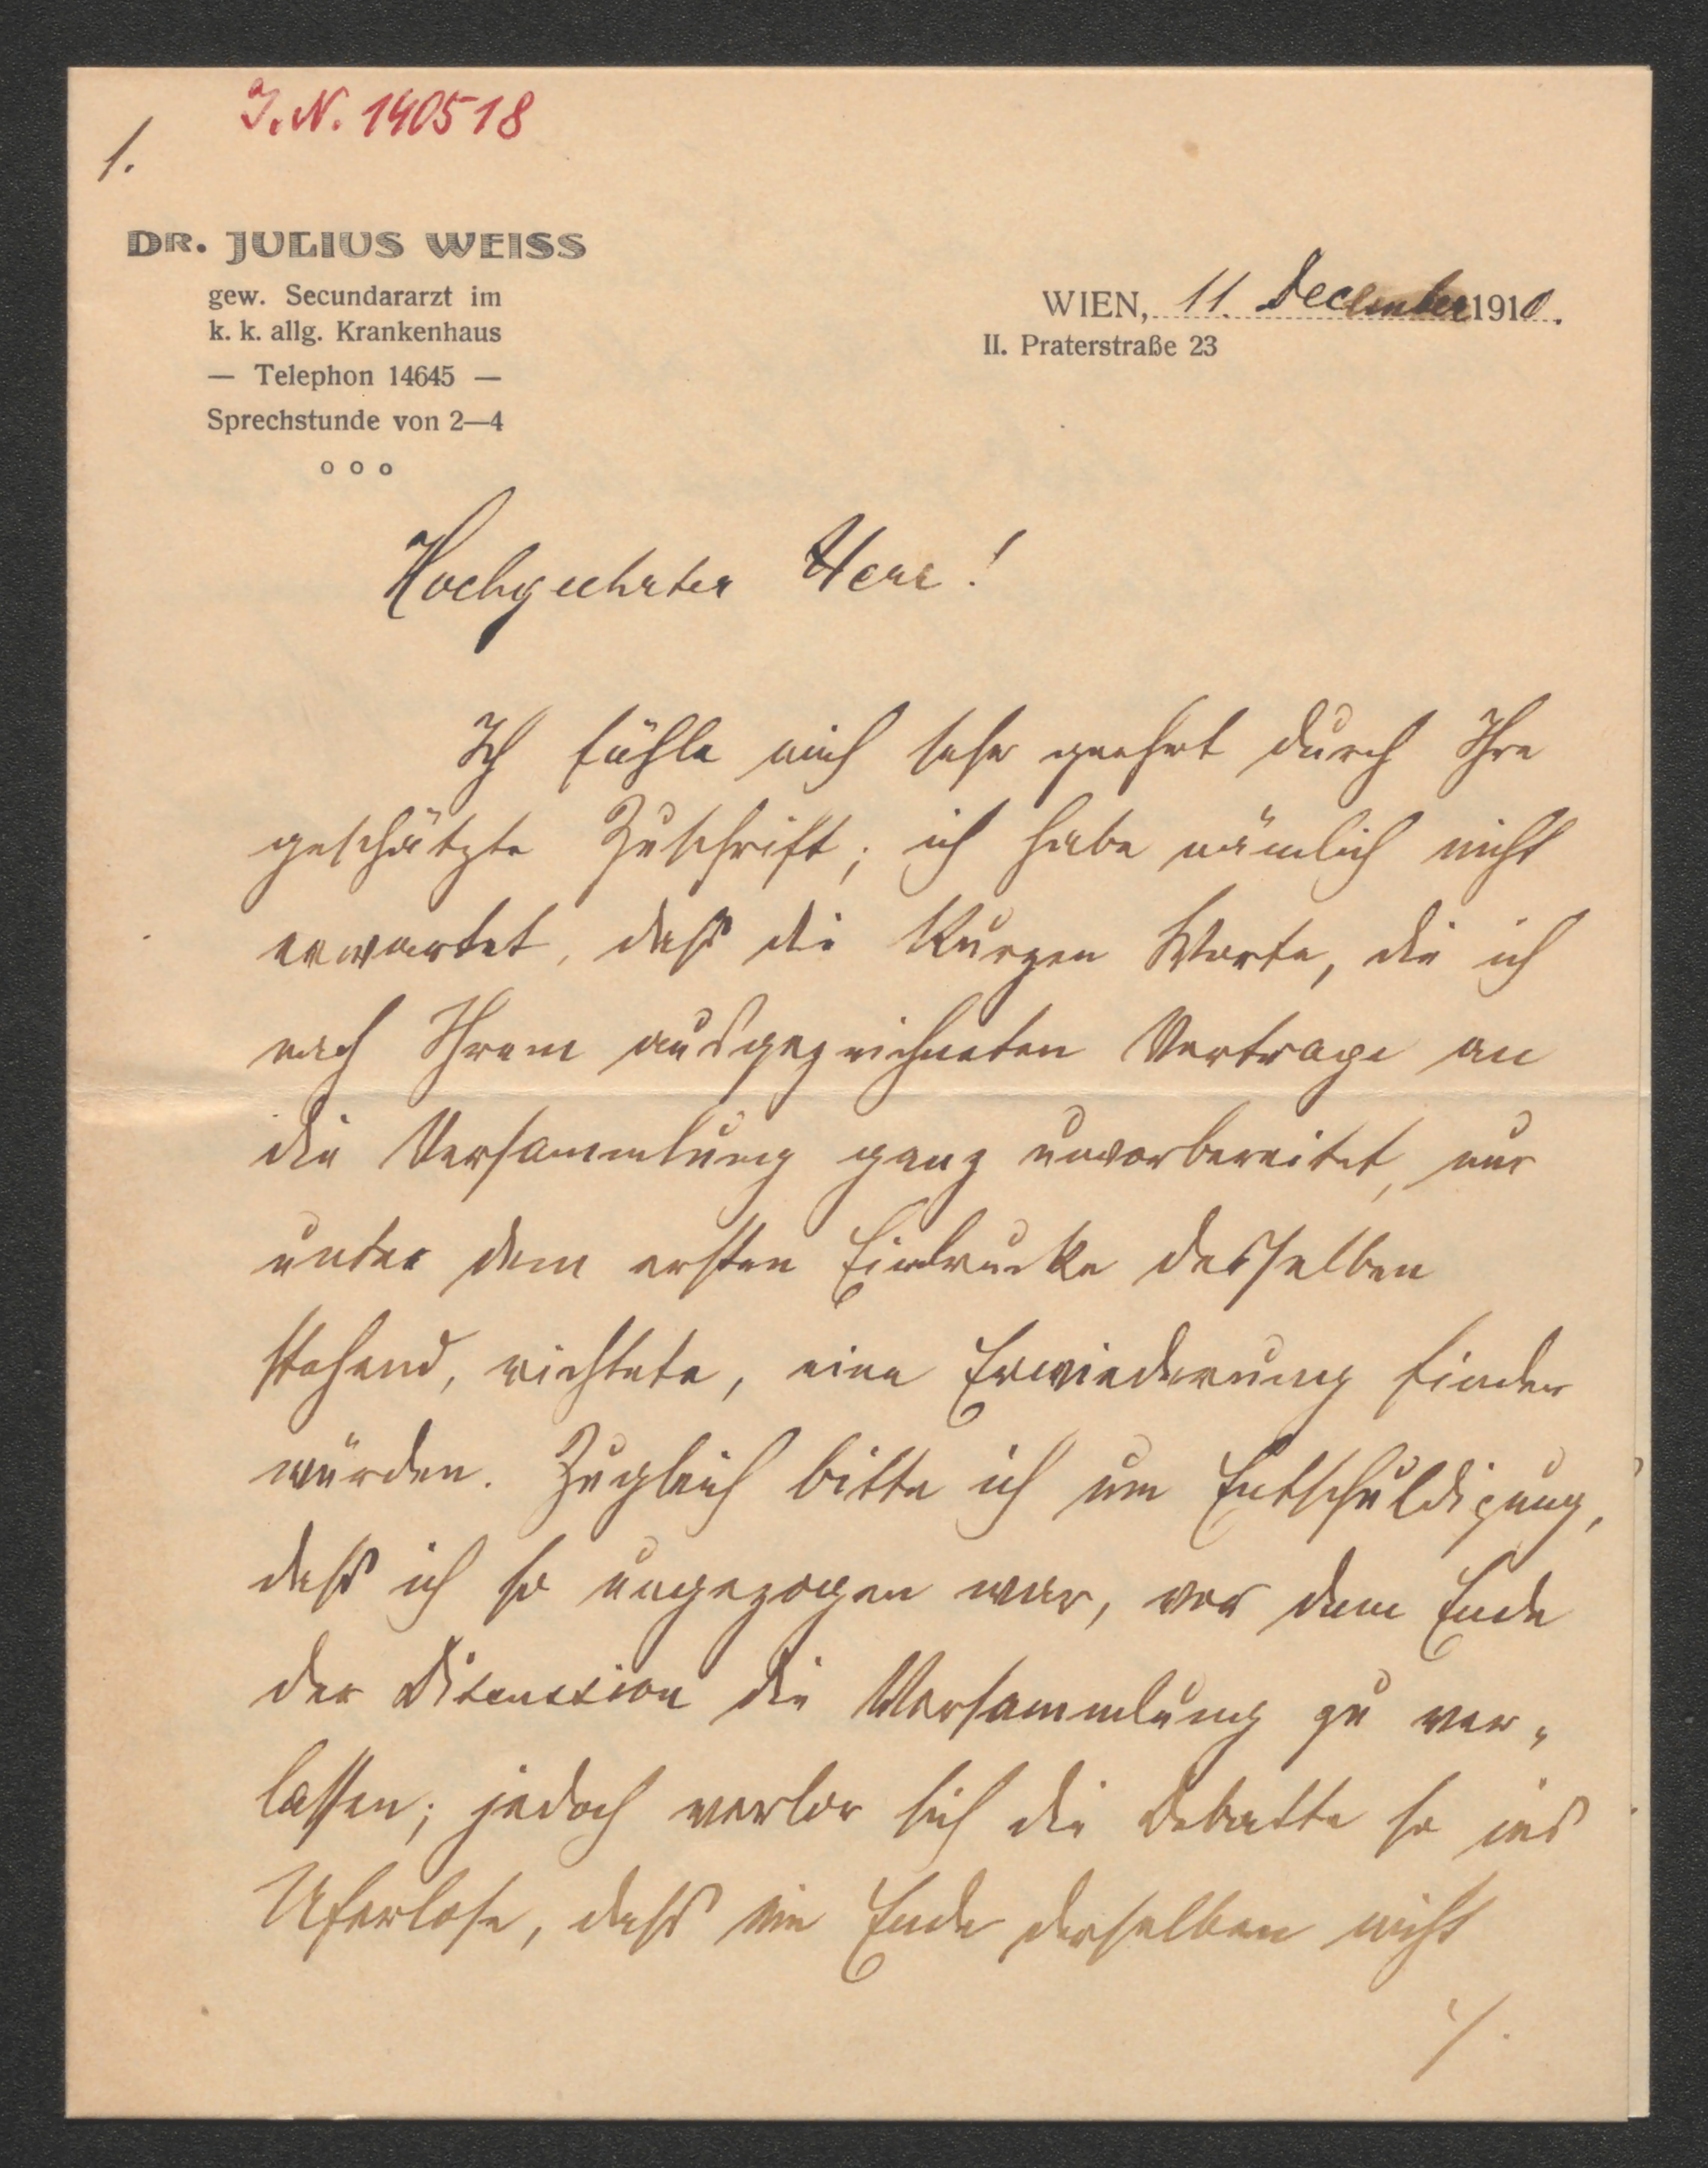 J. N. 140518
1.
DR. JULIUS WEISS
gew. Secundararzt im
k. k. allg. Krankenhaus
— Telephon 14645 —
Sprechstunde von 2—4
o o o
WIEN, 11. December 1910.
II. Praterstraße 23
Hochgeehrter Herr!
Ich fühle mich sehr geehrt durch Ihre
geschätzte Zuschrift; ich habe nämlich nicht
erwartet, daß die kurzen Worte, die ich
nach Ihrem ausgezeichneten Vortrage an
die Versammlung ganz unvorbereitet, nur
unter dem ersten Eindrucke desselben
stehend, richtete, eine Erwiederung finden
würden. Zugleich bitte ich um Entschuldigung,
daß ich so ungezogen war, vor dem Ende
der Discussion die Versammlung zu ver„
lassen; jedoch verlor sich die Debatte so ins
Uferlose, daß ein Ende derselben nicht
./.